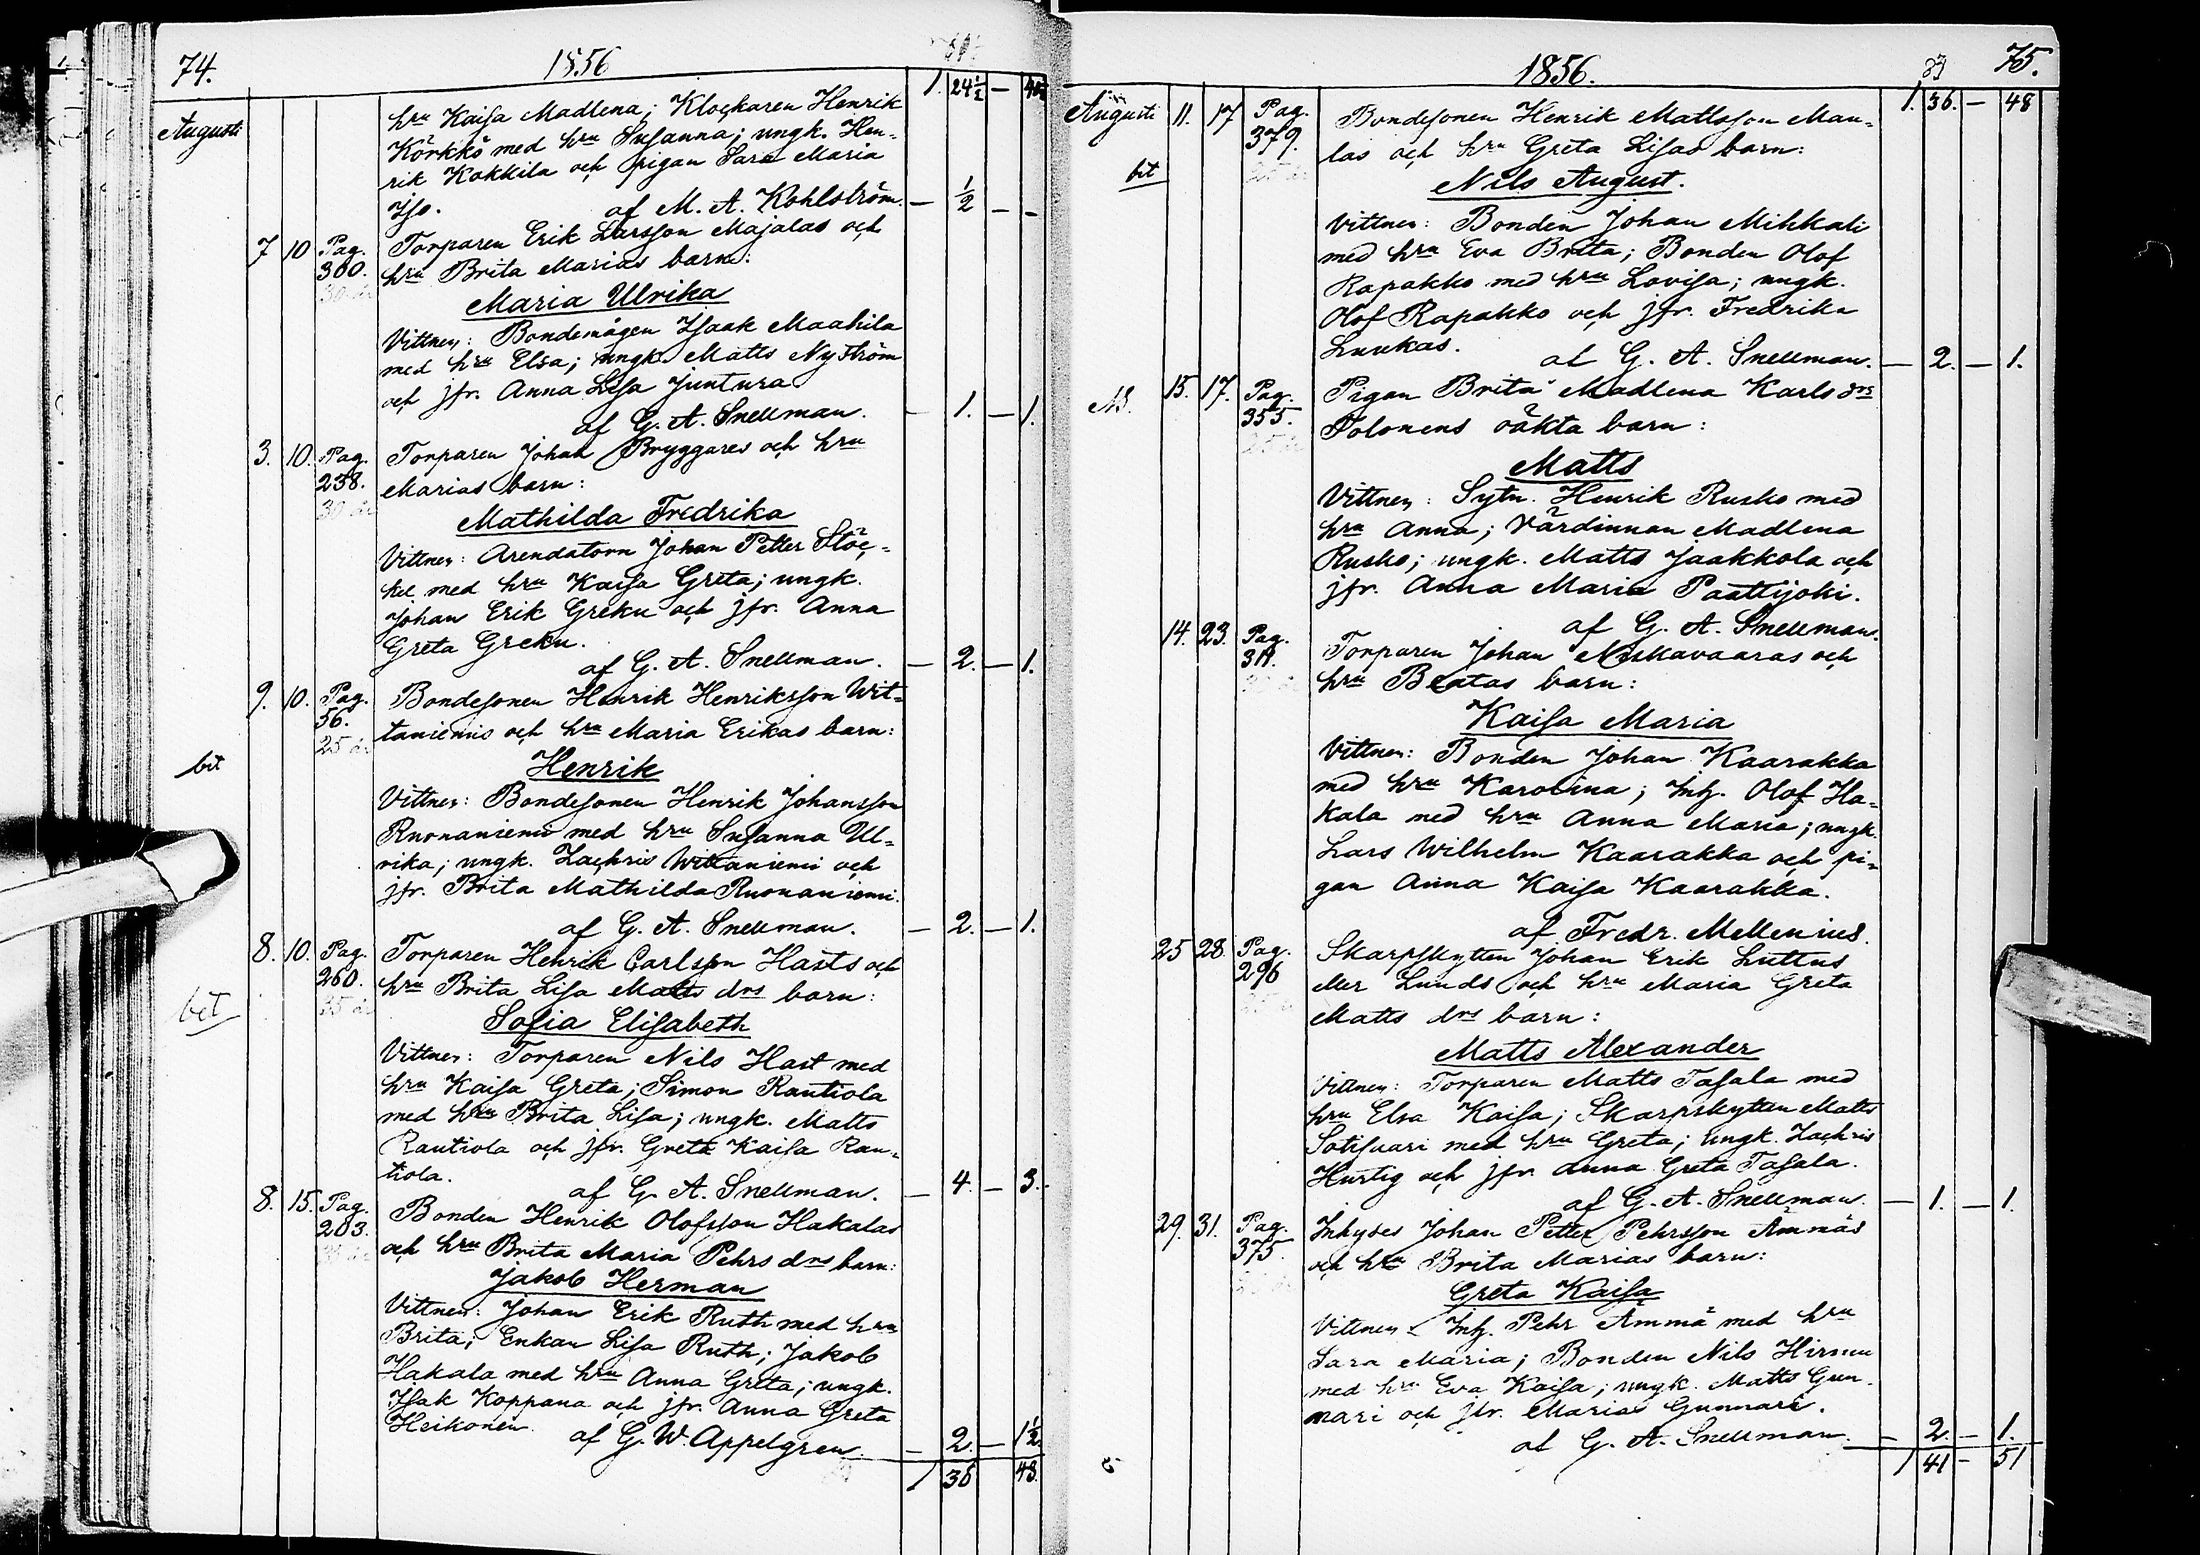 74. 1856
Augusti
hru Kaisa Madlena; Klockaren Henrik 1. 24½ —
Körkkö med hru Susanna; ungk. Hen-
rik Kokkila och pigan Sara Maria
Iso. af M. A. Kohlström. — ½ — -
7 10 Pag. 300. Torparen Erik Larsson Majalas och
30 år hru Brita Marias barn:
Maria Ulrika
Vittnen: Bondemågen Isaak Maahila
med hru Elsa; ungk. Matts Nyström
och jfr. Anna Lisa Juntura
af G. A. Snellman. — 1. — 1.
3. 10. Pag. 238. Torparen Johan Bryggares och hru
30 år Marias barn:
Mathilda Fredrika
Vittnen: Arendatorn Johan Petter Stöc-
kel med hru Kaisa Greta; ungk.
Johan Erik Greku och jfr. Anna
Greta Greku.
af G. A. Snellman. — 2. — 1.
9. 10. Pag. 56. Bondesonen Henrik Henriksson Wit-
25 år taniemis och hru Maria Erikas barn:
bet
Henrik
Vittnen: Bondesonen Henrik Johansson
Ruonaniemi med hru Susanna Ul-
rika; ungk. Zachris Wittaniemi och
jfr. Brita Mathilda Ruonaniemi.
af G. A. Snellman. — 2. — 1.
8. 10. Pag. 260. Torparen Henrik Carlsson Hasts och
35 år hru Brita Lisa Matts drs barn:
bet
Sofia Elisabeth
Vittnen: Torparen Nils Hast med
hru Kaisa Greta; Simon Rautiola
med hru Brita Lisa; ungk. Matts
Rautiola och jfr. Greta Kaisa Rau-
tiola.
af G. A. Snellman. — 4. — 3.
8. 15. Pag. 203. Bonden Henrik Olofsson Hakalas
och hru Brita Maria Pehrs drs barn:
Jakob Herman
Vittnen: Johan Erik Ruth med hru
Brita; Enkan Lisa Ruth; Jakob
Hakala med hru Anna Greta; ungk.
Isak Koppana och jfr. Anna Greta
Heikonen.
af G. W. Appelgren. — 2. — 1½
1 36 48.
1856. 75.
Augusti 11. 17 Pag. 379. Bondesonen Henrik Mattsson Mau- 1. 36. — 48
las och hru Greta Lisas barn:
bet
Nils August.
Vittnen: Bonden Johan Mihkali
med hru Eva Brita; Bonden Olof
Rapakko med hru Lovisa; ungk.
Olof Rapakko och jfr. Fredrika
Luukas.
af G. A. Snellman. — 2. — 1.
NB. 15. 17. Pag. 355. Pigan Brita Madlena Karls drs
Tolonens oäkta barn:
Matts
Vittnen: Sytn. Henrik Rusko med
hru Anna; Värdinnan Madlena
Rusko; ungk. Matts Jaakkola och
jfr. Anna Maria Paattijoki.
af G. A. Snellman.
14. 23. Pag. 311. Torparen Johan Niskavaaras och
hru Beatas barn:
Kaisa Maria
Vittnen: Bonden Johan Kaarakka
med hru Karolina; Inh. Olof Ha-
kala med hru Anna Maria; ungk.
Lars Wilhelm Kaarakka och pi-
gan Anna Kaisa Kaarakka.
af Fredr. Mellenius.
25 28. Pag. 296 Skarpskytten Johan Erik Luttus
eller Lunds och hru Maria Greta
Matts drs barn:
Matts Alexander
Vittnen: Torparen Matts Tasala med
hru Elsa Kaisa; Skarpskytten Matts
Sotisaari med hru Greta; ungk. Zachris
Hurtig och jfr Anna Greta Tasala.
af G. A. Snellman. — 1. — 1.
29. 31. Pag. 375. Inhyses Johan Petter Pehrsson Ämmäs
och hru Brita Marias barn:
Greta Kaisa
Vittnen: Inh. Pehr Ämmä med hru
Sara Maria; Bonden Nils Hirmu
med hru Eva Kaisa; ungk. Matts Gun-
nari och jfr. Maria Gunnari.
af G. A. Snellman. — 2. — 1.
1 41 — 51